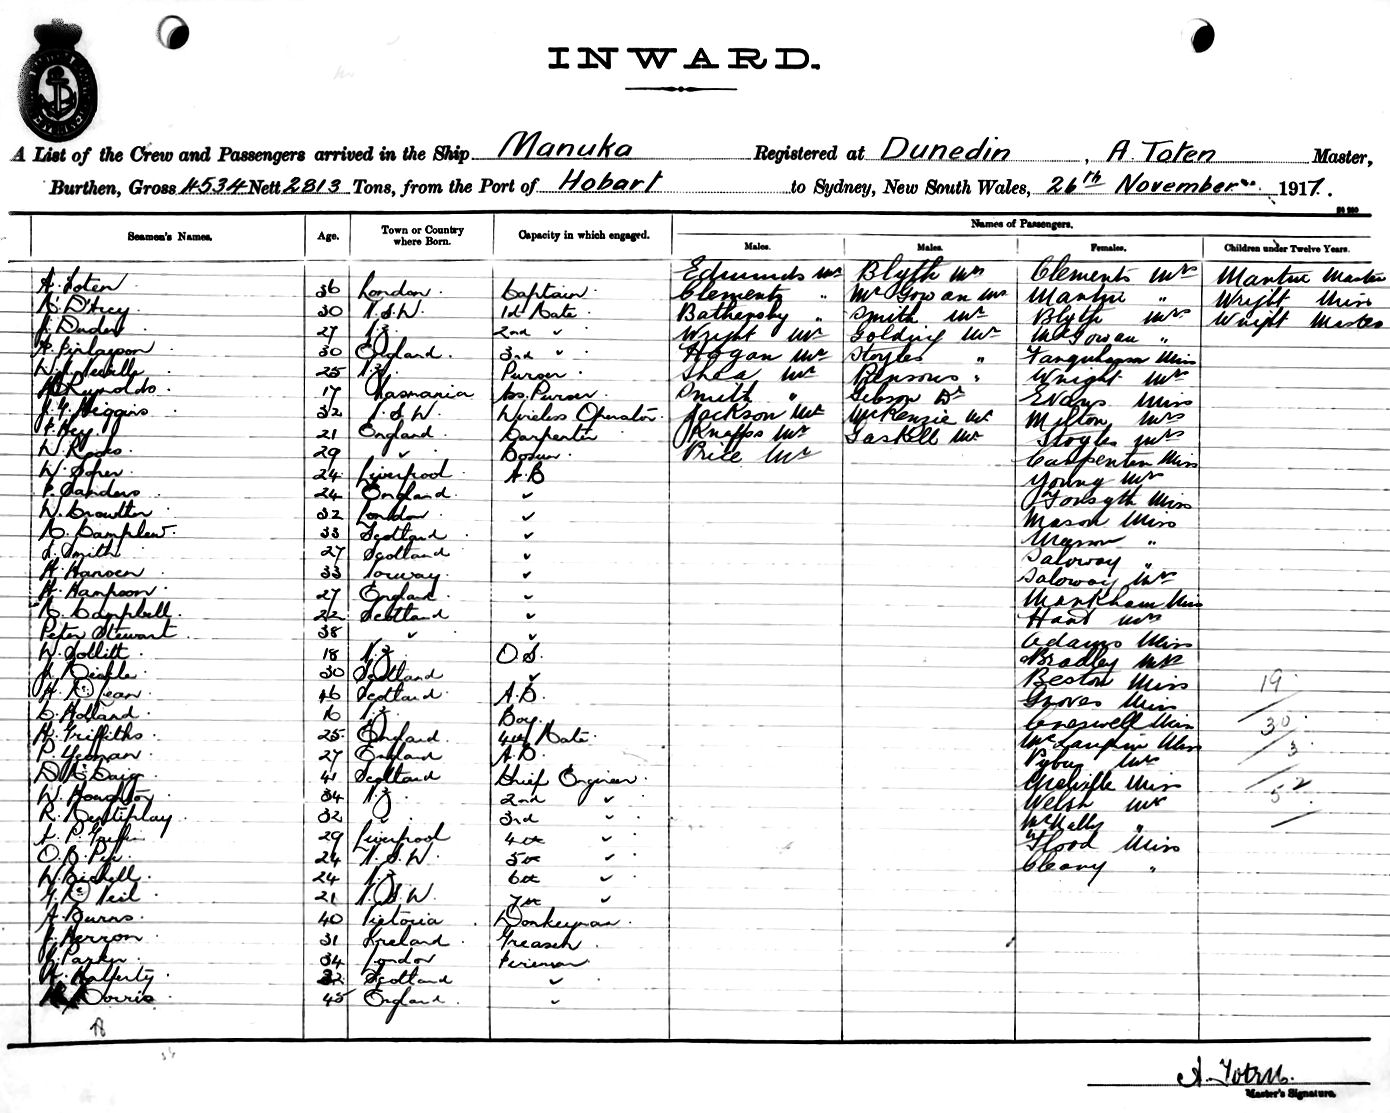 INWARD.
A List of the Crew and Passengers arrived in the Ship Manuka Registered at Dunedin, A. Toten Master,
Burthen, Gross 4534 Nett 2813 Tons, from the Port of Hobart to Sydney, New South Wales, 26th November 1917.
Seamen's Names. Age. Town or Country where Born. Capacity in which engaged. Names of Passengers.
Males. Males. Females. Children under Twelve Years.
Edmunds Mr Blyth Mr Clements Mrs Mantue Master
A. Toten 36 London Captain Clements " McGowan Mr Mantue " Wright Miss
A. D'Arcy 30 N.S.W. 1st Mate Bathersby " Smith Mr Blyth Mrs Wright Master
27 N.Z. 2nd " Wright Mr Golding Mr McGowan "
A. Finlayson 30 England 3rd " Hogan Mr Stoyles " Farquharson Miss
25 N.Z. Purser Shea Mr Parsons " Wright Mrs
Reynolds 17 Tasmania As. Purser Smith " Gibson Dr Evans Miss
J. G. Higgins 32 N.S.W. Wireless Operator Jackson Mr McKenzie Mr Milton Mrs
Hey 21 England Carpenter Knapps Mr Gaskell Mr Stoyles Mrs
W. 29 " Bosun Price Mr Carpenter Miss
W. 24 Liverpool A.B Young Mrs
Sanders 24 England " Forsyth Miss
W. Crowther 32 London " Mason Miss
33 Scotland " Mason "
Smith 27 Scotland " Saloway "
H. Hansen 33 Norway " Saloway Mrs
H. Hampson 27 England " Markham Miss
Campbell 22 Scotland " Hard Mrs
Peter Stewart 38 " " Adams Miss
W. Sollitt 18 N.Z. O.S. Bradley Mrs
30 Scotland " Beston Miss 19
Lean 46 Scotland A.B. Groves Miss
Holland 16 N.Z. Boy Creswell Miss 30
H. Griffiths 25 England 4th Mate Miss 3
P. Yeoman 27 England A.B. Mrs
D. 41 Scotland Chief Engineer Miss 52
W. Houghton 34 N.Z. 2nd " Welsh Mrs
R. 32 " 3rd " McNally "
P. Griffin 29 Liverpool 4th " Flood Miss
24 N.S.W. 5th " Cleary "
W. 24 N.Z. 6th "
Neil 21 N.S.W. 7th "
A. Burns 40 Victoria Donkeyman
J. Herron 31 Ireland Greaser
Parker 34 London Fireman
Rafferty 32 Scotland "
Morris 45 England "
A. Toten
Master's Signature.